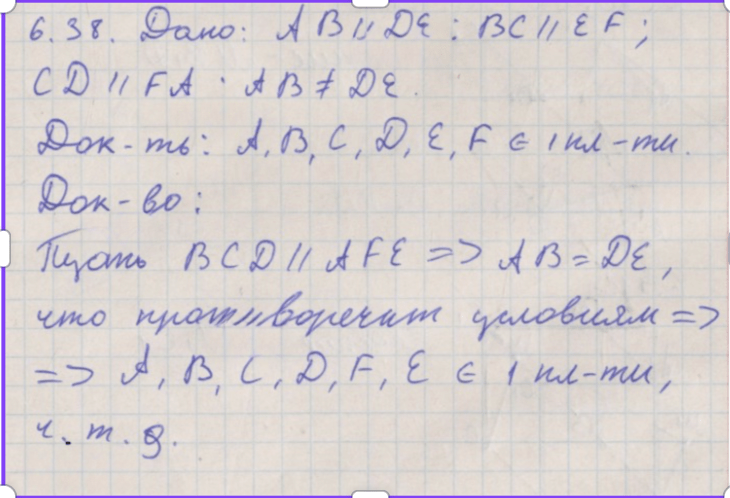 6.38. Дано: AB || DE ; BC || EF ;
CD || FA . AB ≠ DE .
Док-ть: A, B, C, D, E, F ∈ 1 пл-ти.
Док-во:
Пусть BCD || AFE => AB = DE ,
что противоречит условиям =>
=> A, B, C, D, F, E ∈ 1 пл-ти,
ч. т. д.